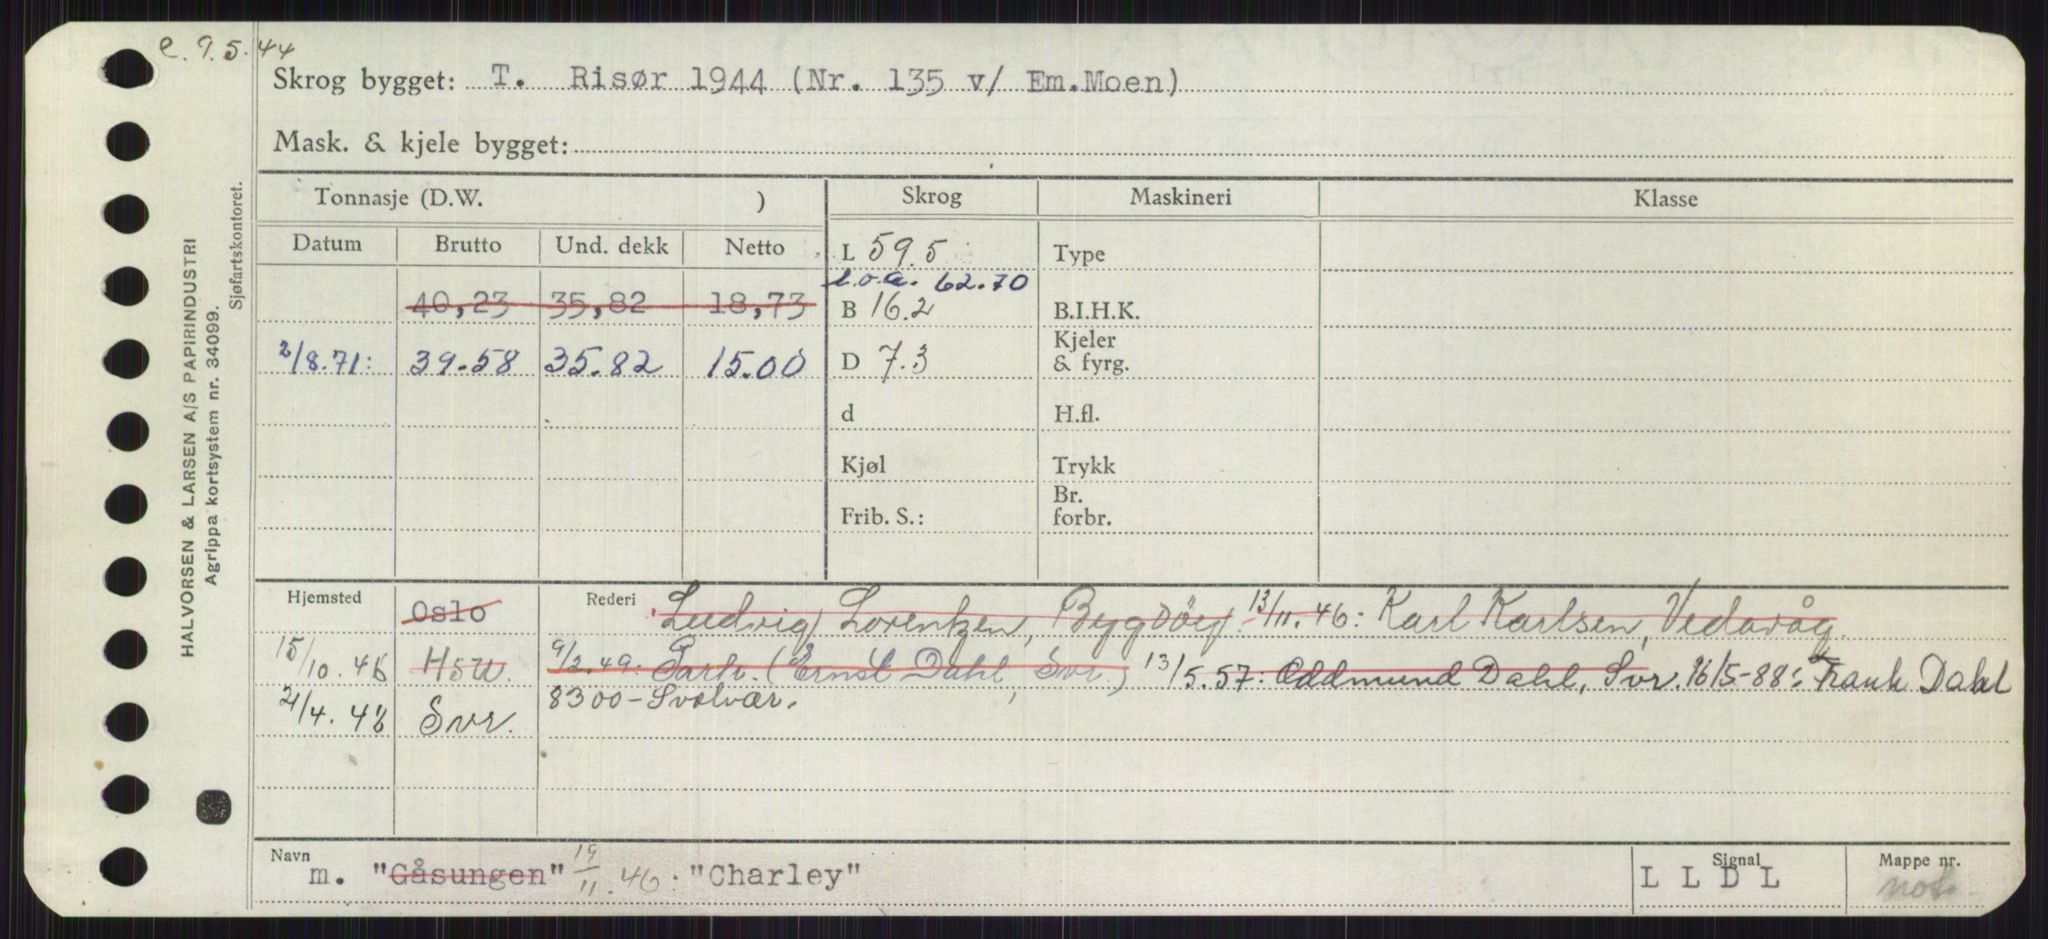 e. 9.5.44
Skrog bygget: T. Risør 1944 (Nr. 135 v/ Em.Moen)
Mask. & kjele bygget:
HALVORSEN & LARSEN A/S PAPIRINDUSTRI
Agrippa kortsystem nr. 34099.
Sjøfartskontoret.
Tonnasje (D.W. ) Skrog Maskineri Klasse
Datum Brutto Und. dekk Netto L 59.5 Type
l.o.a. 62.70
40,23 35,82 18,73 B 16.2 B.I.H.K.
2/8.71: 39.58 35.82 15.00 D 7.3 Kjeler & fyrg.
d H.fl.
Kjøl Trykk
Frib. S.: Br. forbr.
Hjemsted Oslo Rederi Ludvig Lorentzen, Bygdöy. 13/11.46: Karl Karlsen, Vedavåg
15/10.46 Hsu. 9/2.49: Partr. (Ernst Dahl, Svr.) 13/5.57: Oddmund Dahl, Svr. 16/5-88: Frank Dahl
21/4.48 Svr. 8300-Svolvær.
Navn m. "Gåsungen" 19/11.46: "Charley" Signal L L D L Mappe nr.
not